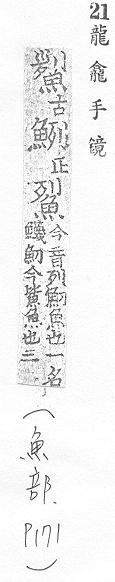 21 龍龕手镜
古鮤正今音列鮤魚也一名
鱴魛今鮆魚也三
（魚部、P171）